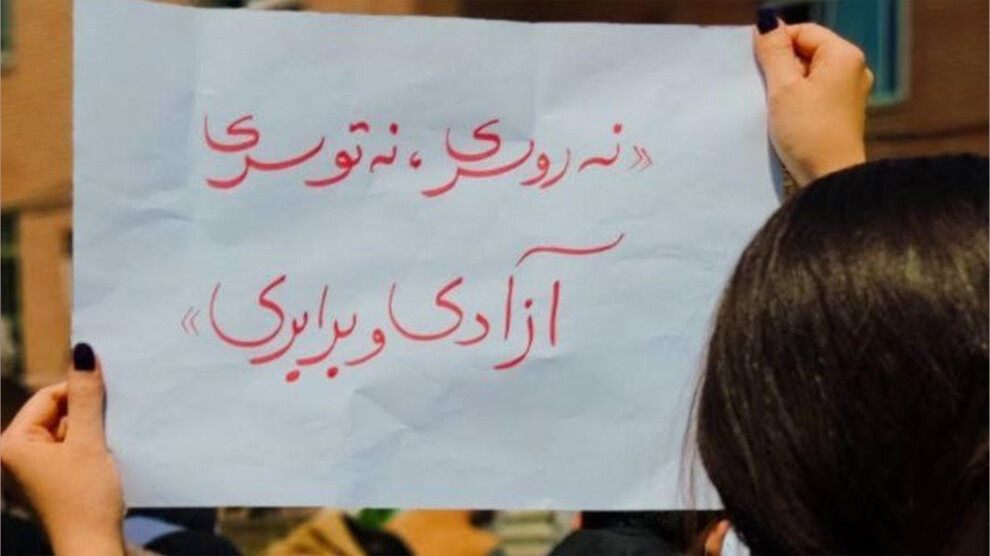 «نه روسری ، نه توسری
آزادی و برابری»